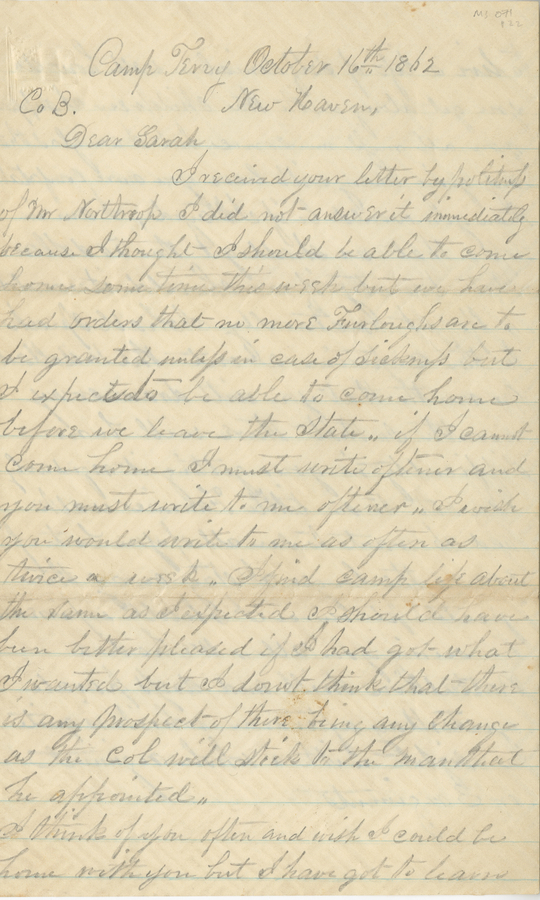 Ms 091
Camp Terry October 16th 1862
Co B. New Haven,
Dear Sarah
I received your letter by politness
of Mr Northrop I did not answer it immediately
because I thought I should be able to come
home some time this week but we have
had orders that no more Furloughs are to
be granted unless in case of Sickness but
I expect to be able to come home
before we leave the State,, if I cannot
come home I must write oftener and
you must write to me oftener,, I wish
you would write to me as often as
twice a week,, I find camp life about
the same as I expected I should have
been better pleased if I had got what
I wanted but I dont think that there
is any prospect of there being any Change
as the Col will stick to the man that
he appointed,,
I think of you often and wish I could be
home with you but I have got to learn